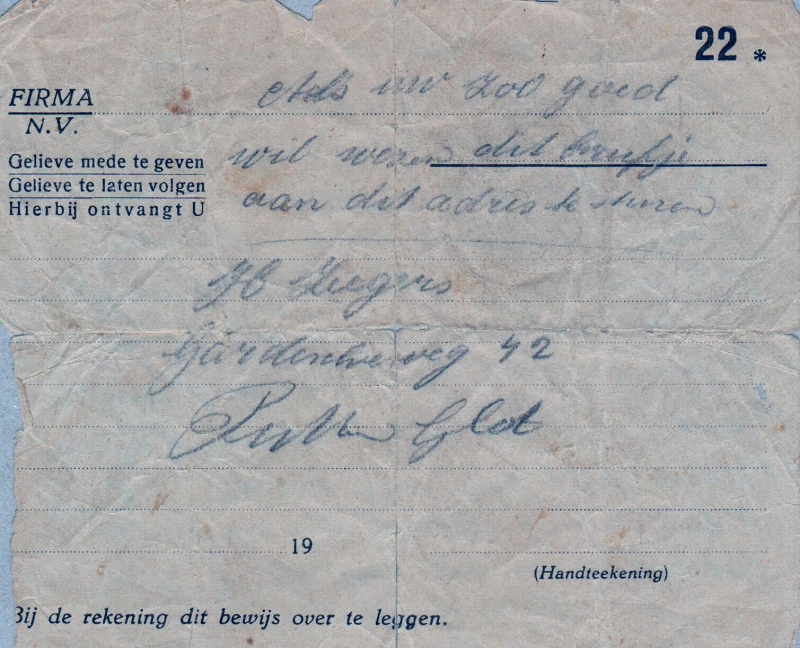 22 *
FIRMA
N.V.
Gelieve mede te geven
Gelieve te laten volgen
Hierbij ontvangt U
Als uw zoo goed
wil wezen dit briefje
aan dit adres te sturen
42
Putten Gld
19
(Handteekening)
Bij de rekening dit bewijs over te leggen.